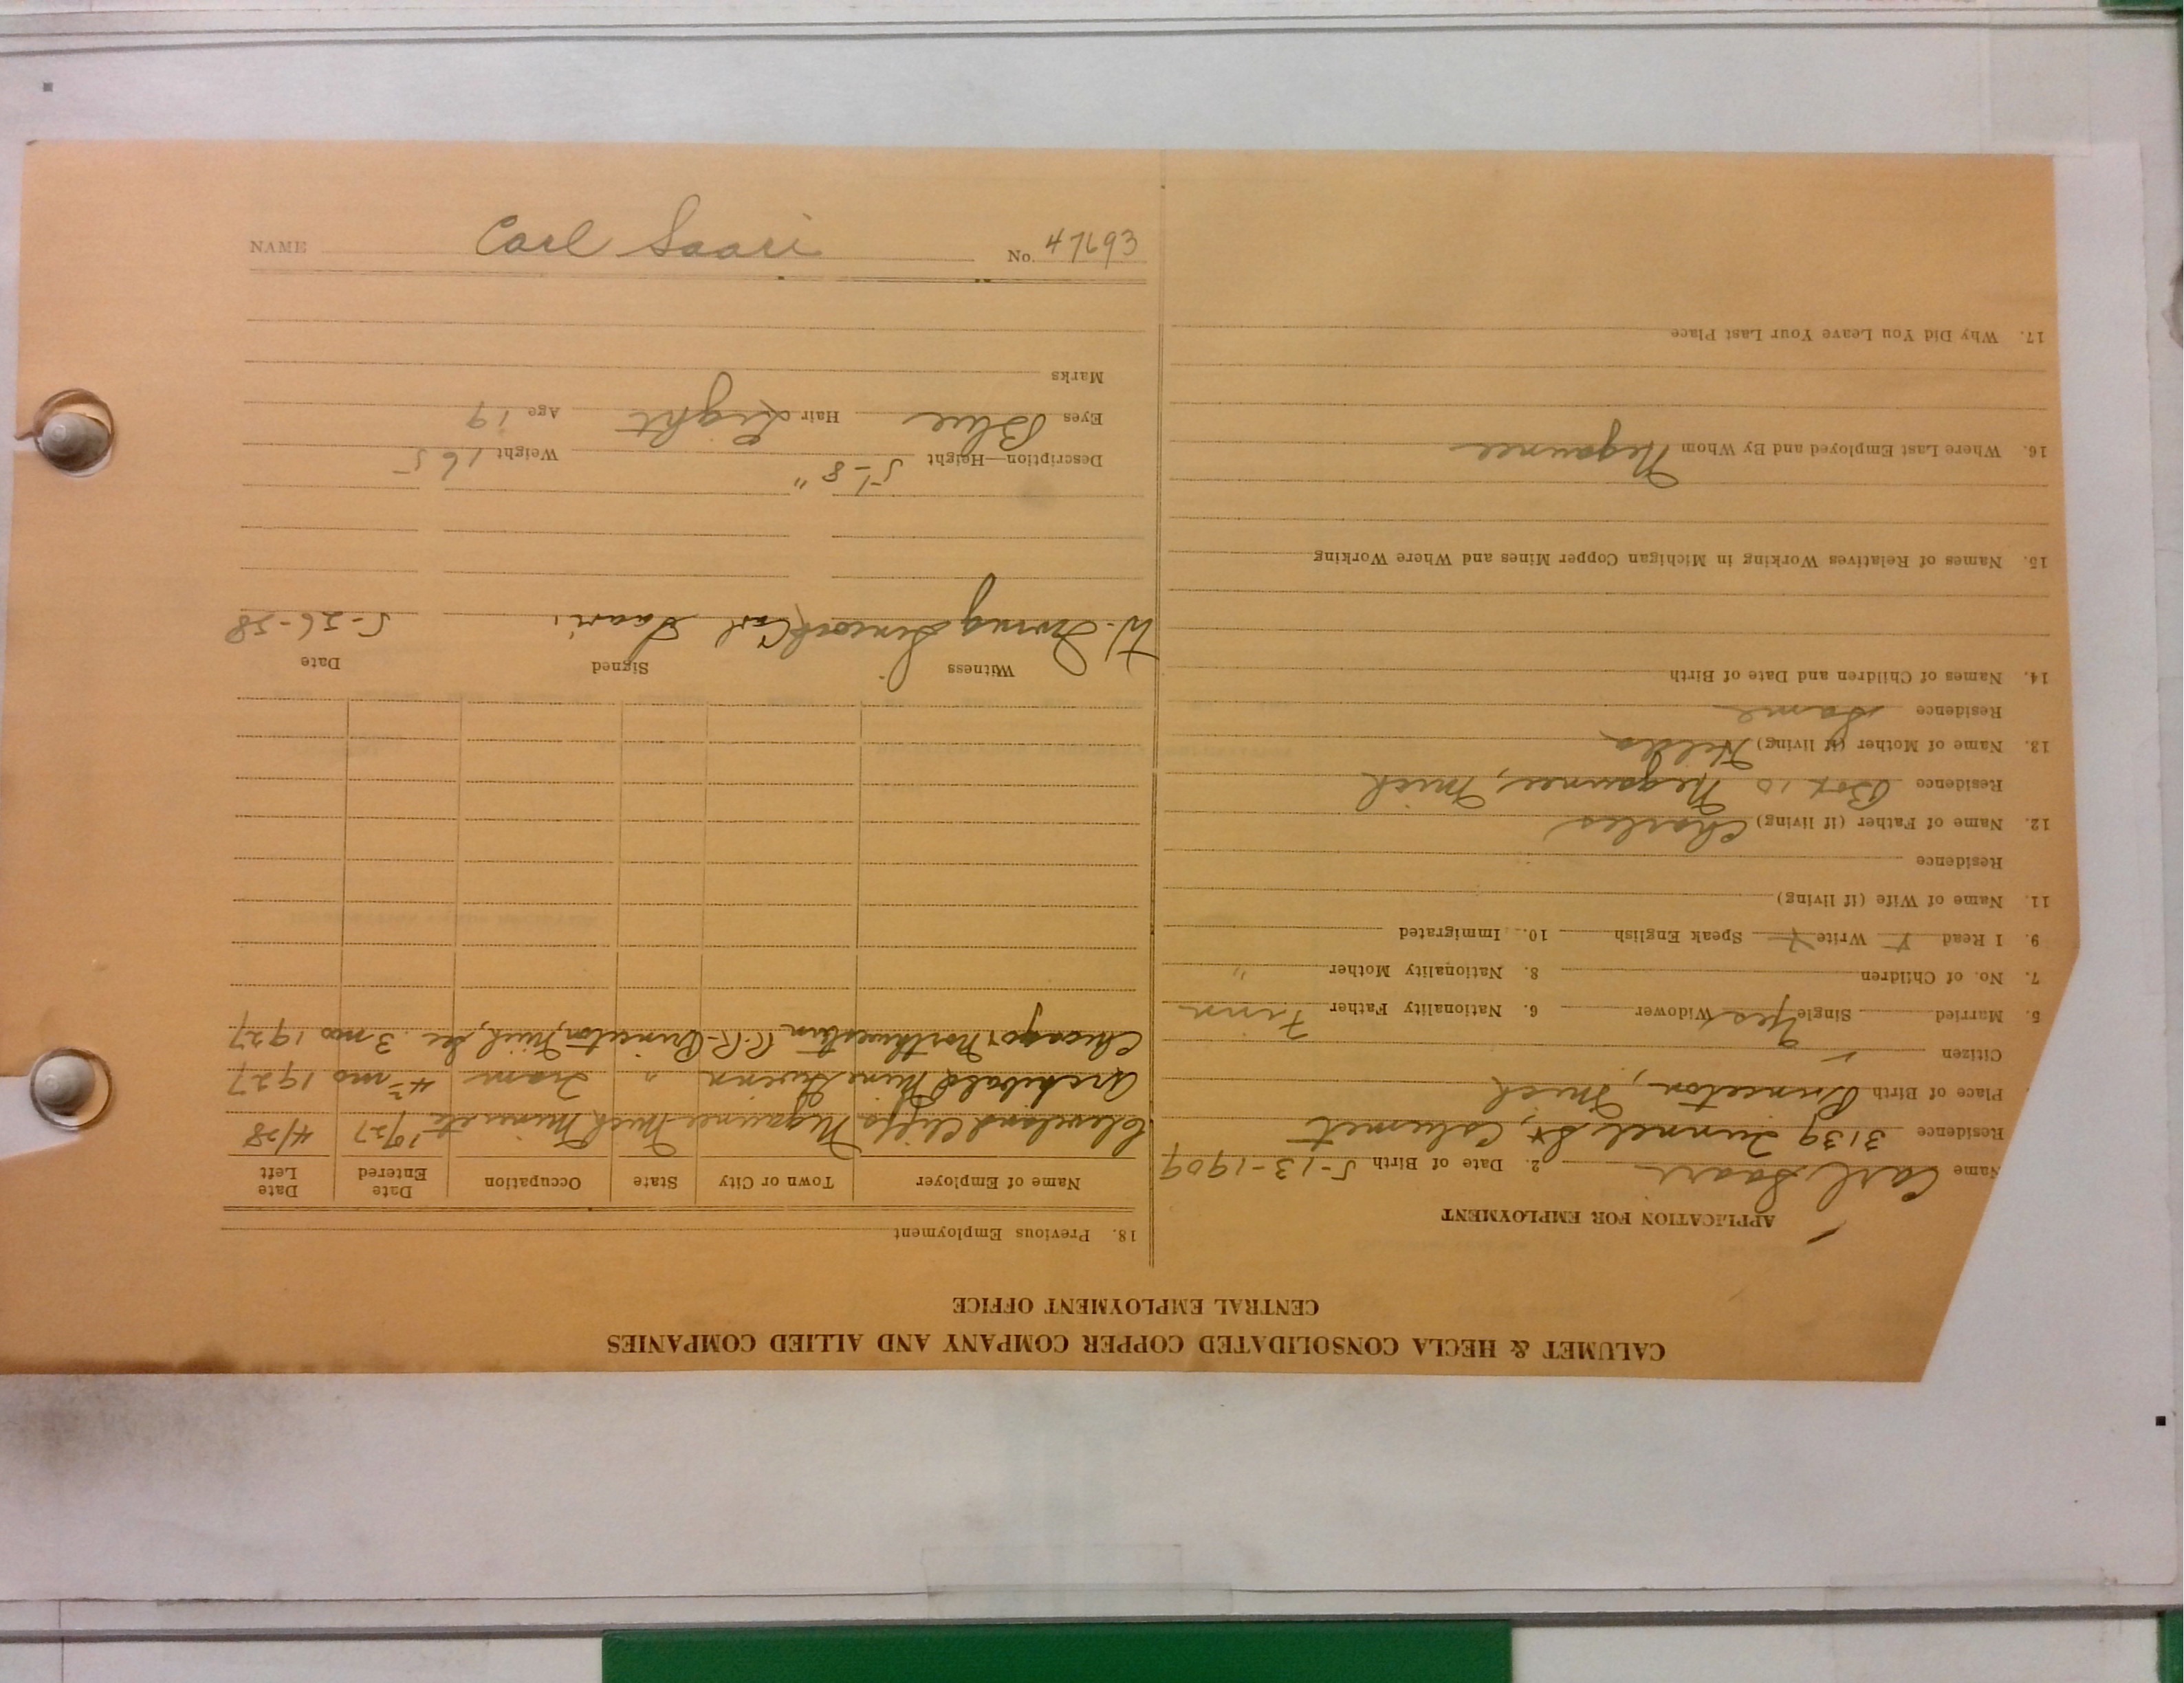 CALUMET & HECLA CONSOLIDATED COPPER COMPANY AND ALLIED COMPANIES
CENTRAL EMPLOYMENT OFFICE
APPLICATION FOR EMPLOYMENT
Name Carl Saari 2. Date of Birth 5-13-1909
Residence 3139 Tunnel St, Calumet
Place of Birth Princeton, Mich
Citizen
5. Married Single Yes Widower 6. Nationality Father Finn
7. No. of Children 8. Nationality Mother "
9. I Read Write Speak English 10. Immigrated
11. Name of Wife (if living)
Residence
12. Name of Father (if living) Charles
Residence Box 10 Negaunee, Mich
13. Name of Mother (if living) Hilda
Residence Same
14. Names of Children and Date of Birth
15. Names of Relatives Working in Michigan Copper Mines and Where Working
16. Where Last Employed and By Whom Negaunee
17. Why Did You Leave Your Last Place
18. Previous Employment
Name of Employer Town or City State Occupation Date Entered Date Left
Cleveland Cliffs Negaunee Mich Miner 10/27 4/28
Archibald Mine Gwinn " Tram 4 mo 1927
Chicago & Northwestern R.R. Princeton, Mich, 3 mos 1927
Witness Signed Date
W. Carl Saari 5-26-28
Description—Height 5-8" Weight 165
Eyes Blue Hair Light Age 19
Marks
NAME Carl Saari No. 47693